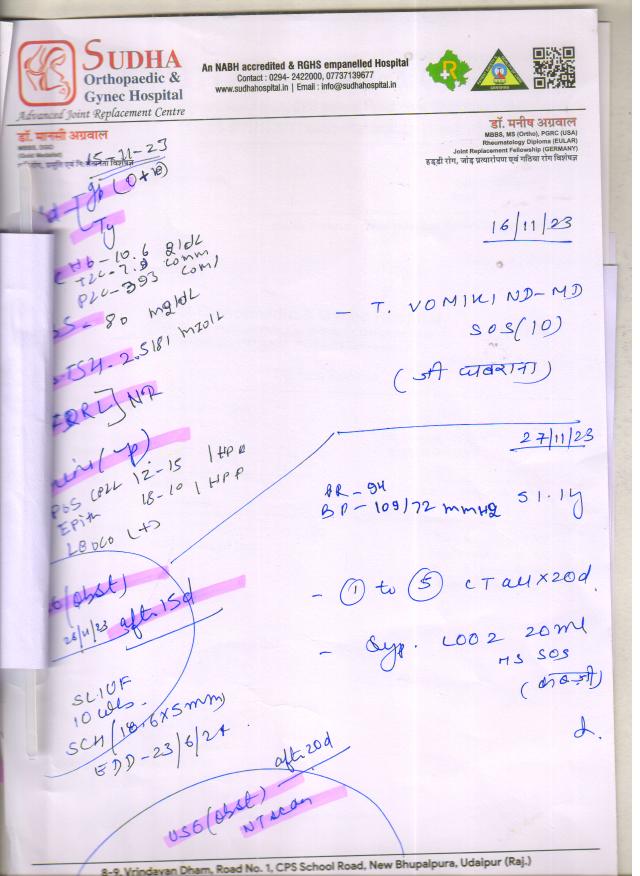 SUDHA
Orthopaedic &
Gynec Hospital
Advanced Joint Replacement Centre
An NABH accredited & RGHS empanelled Hospital
Contact : 0294- 2422000, 07737139677
www.sudhahospital.in | Email : info@sudhahospital.in
डॉ. मानसी अग्रवाल
MBBS, DGO
डॉ. मनीष अग्रवाल
MBBS, MS (Ortho), PGRC (USA)
Rheumatology Diploma (EULAR)
Joint Replacement Fellowship (GERMANY)
हड्डी रोग, जोड़ प्रत्यारोपण एवं गठिया रोग विशेषज्ञ
15-11-23
Hb-10.6 g/dL
TLC-7.9
PLC-393
80 mg/dL
TSH-2.5181
NR
Pus cell 12-15 /HPF
Epith 18-10 /HPF
(obst)
26/11/23 after 15d
SLIUF
10 wks.
SCH (18.6x5mm)
EDD-23/6/24
16/11/23
- T. VOMIKIND-MD
SOS (10)
(जी घबराना)
27/11/23
PR-94
BP-109/72 mmHg 51.1
- ① to ⑤ CT all x 20d.
- Syp. LOOZ 20ml
HS SOS
(कब्ज़ी)
USG (obst) after 20d
NT scan
8-9, Vrindavan Dham, Road No. 1, CPS School Road, New Bhupalpura, Udaipur (Raj.)